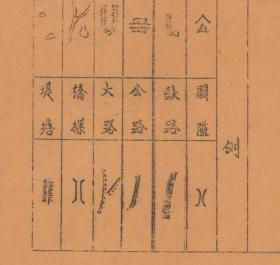 例
關隘
鉄路
公路
大路
橋樑
堤塘